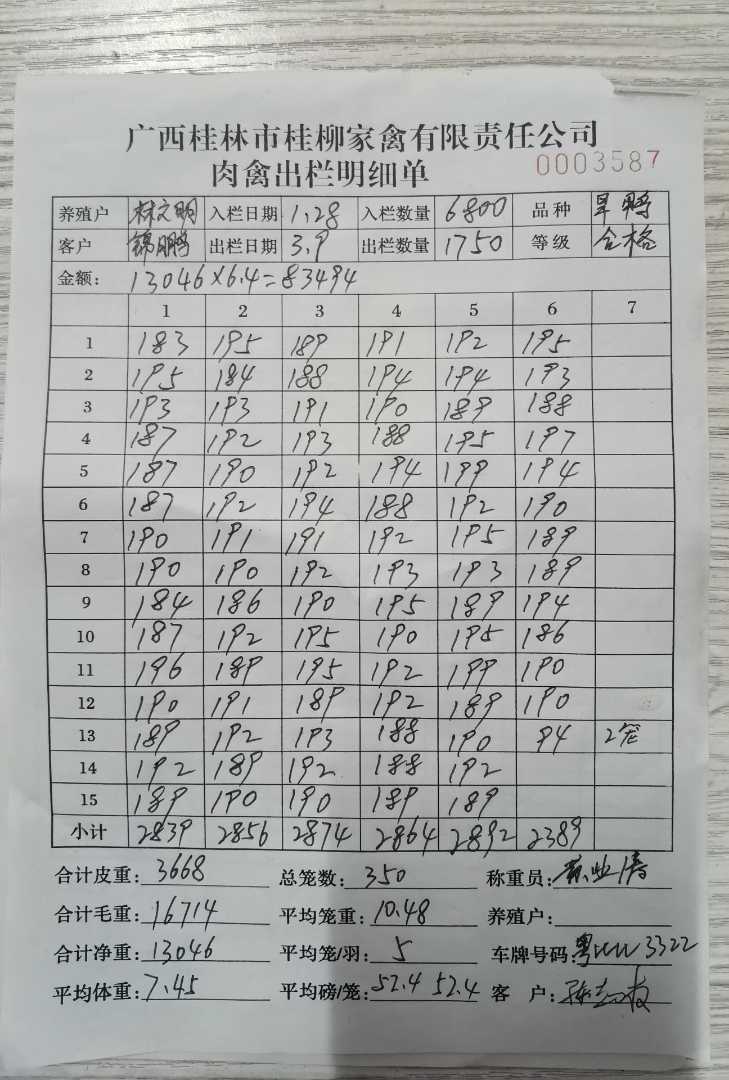 广西桂林市桂柳家禽有限责任公司
肉禽出栏明细单 0003587
养殖户 林文明 入栏日期 1.28 入栏数量 6800 品种 旱鸭
客户 锦鹏 出栏日期 3.9 出栏数量 1750 等级 合格
金额: 13046×6.4=83494
1 2 3 4 5 6 7
1 183 195 189 191 192 195
2 195 184 188 194 194 193
3 193 193 191 190 189 188
4 187 192 193 188 195 197
5 187 190 192 194 199 194
6 187 192 194 188 192 190
7 190 191 191 192 195 189
8 190 190 192 193 193 189
9 184 186 190 195 189 194
10 187 192 195 190 195 186
11 196 189 195 192 199 190
12 190 191 189 192 189 190
13 189 192 193 188 190 94 2笼
14 192 189 192 188 192
15 189 190 190 189 189
小计 2839 2856 2874 2864 2892 2389
合计皮重: 3668 总笼数: 350 称重员:
合计毛重: 16714 平均笼重: 10.48 养殖户:
合计净重: 13046 平均笼/羽: 5 车牌号码: 粤 3322
平均体重: 7.45 平均磅/笼: 52.4 52.4 客 户: